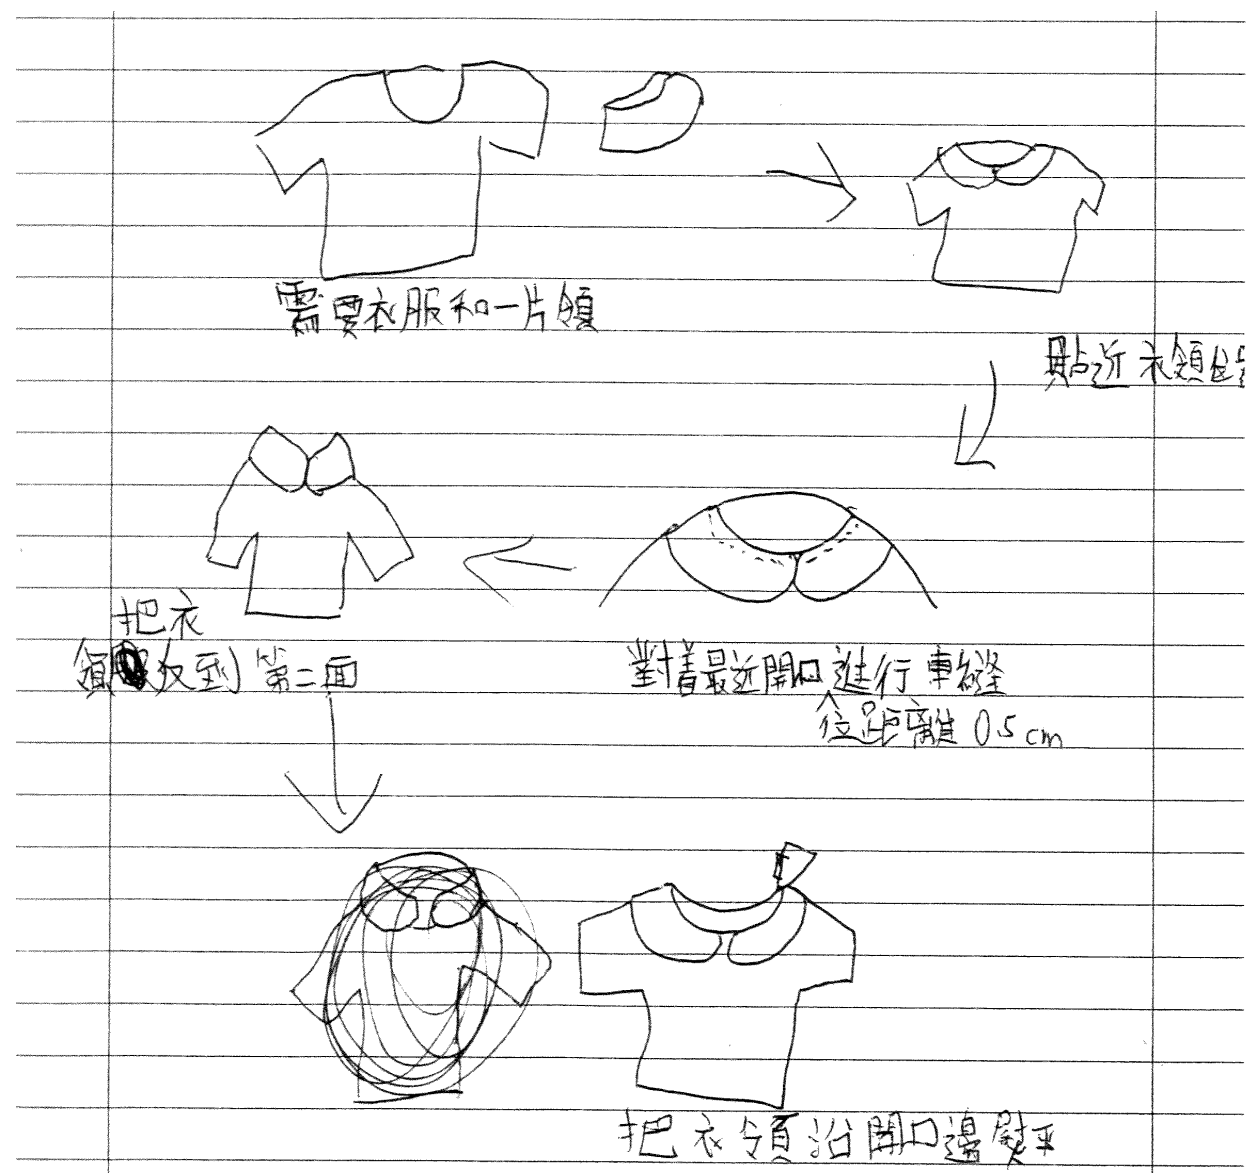 需要衣服和一片領
貼近衣領位
對着最近開口位進行車縫
距離 0.5cm
把衣
領反到第二面
把衣領沿開口邊熨平